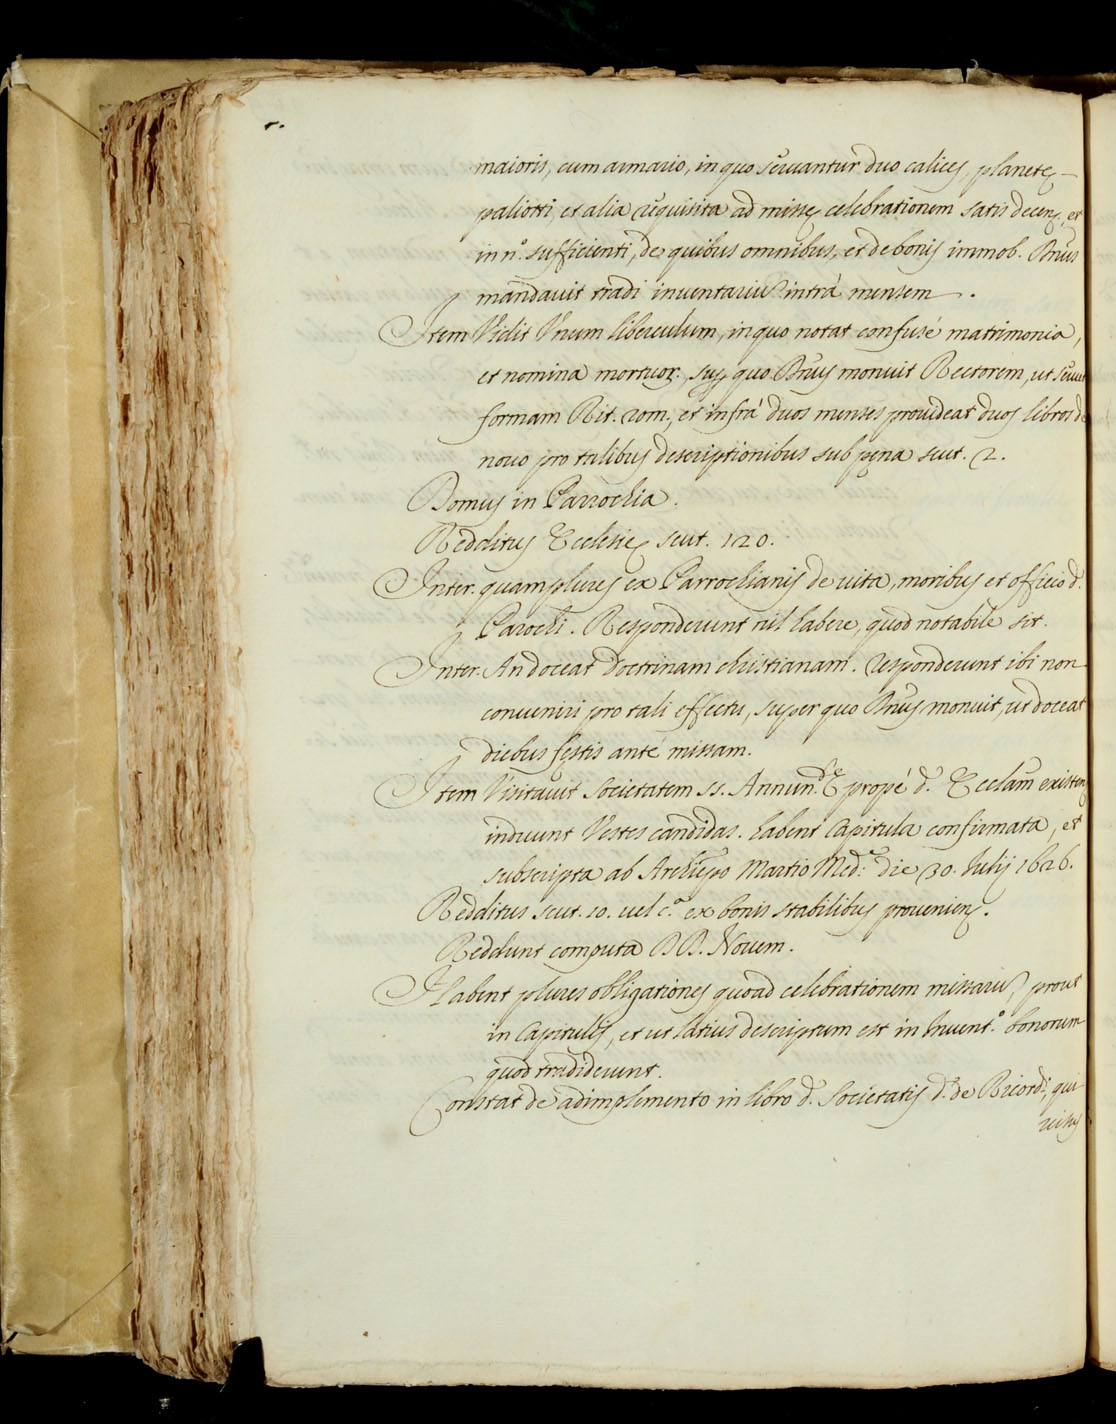 maioris, cum armario, in quo servantur duo calices, planetę
paliotti, et alia requisita ad missę celebrationem satis decenq., et
in n.º sufficienti, de quibus omnibus, et de bonis immob. Dñus
mandavit tradi inventariũ intrá mensem.
Item Vidit Vnum liberculum, in quo notat confusé matrimonia,
et nomina mortuor., sup. quo Dñus monuit Rectorem, ut servet
formam Rit. rom., et infrá duos menses provideat duos libros de
novo pro talibus descriptionibus sub pęna scut. 2.
Domus in Parrochia.
Redditus Ecclesię scut. 120.
Inter. quamplures ex Parrochianis de uita, moribus et officio d.
Parochi. Responderunt nil habere, quod notabile sit.
Inter. An doceat doctrinam christianam. responderunt ibi non
conueniri pro tali effectu, super quo Dñus monuit, ut doceat
diebus festis anté missam.
Item Visitauit Societatem SS. Annun.dę propé d. Ecclam existen.
induunt Vestes candidas. habent Capitula confirmata, et
subscripta ab Archiepo Martio Med.e die 30. Iulij 1626.
Redditus scut. 10. uel c.ª ex bonis stabilibus prouenien.
Reddunt computa DD. Novem.
Habent plures obligationes quoad celebrationem missarũ, prout
in Capitulis, et ut latius descriptum est in Inuent.º bonorum
quod tradiderunt.
Constat de adimplemento in libro d. Societatis d. de Ricordi, qui